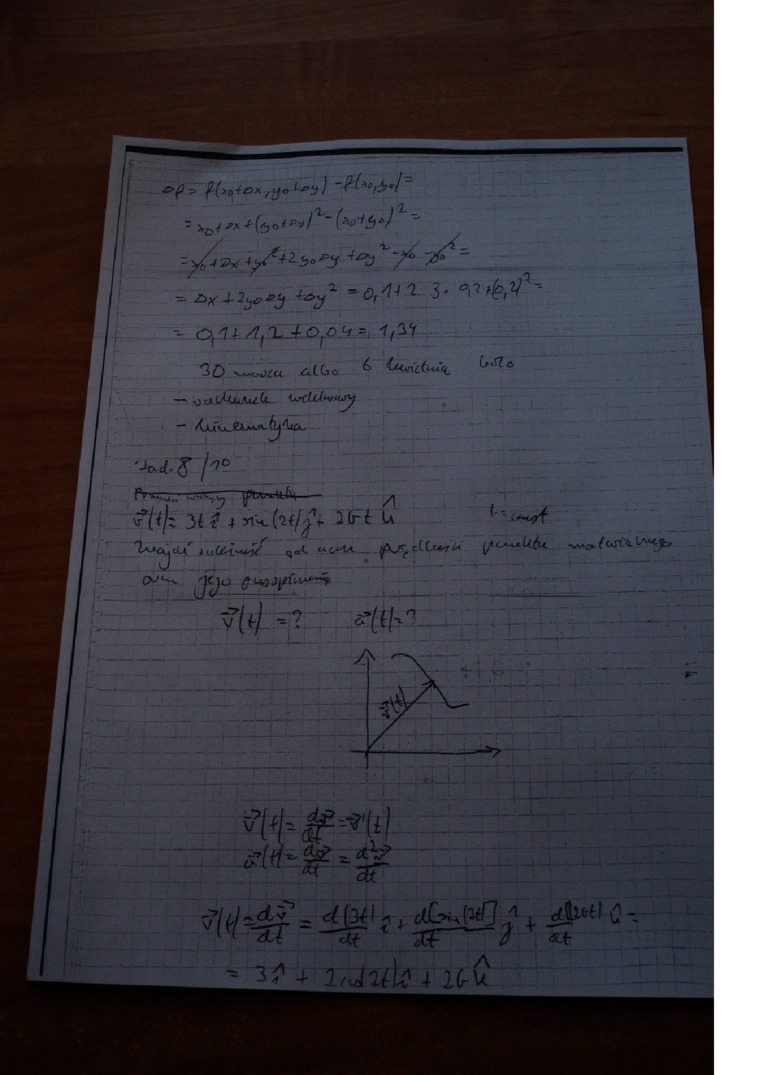 Δf = f(x₀+Δx, y₀+Δy) - f(x₀,y₀)=
= x₀+Δx+(y₀+Δy)² - (x₀+y₀)² =
= x₀+Δx+y₀²+2y₀Δy+Δy² - x₀ - y₀² =
= Δx+2y₀Δy+Δy² = 0,1+2·3·0,2+(0,2)² =
= 0,1+1,2+0,04 = 1,34
30 marca albo 6 kwietnia koło
- rachunek wektorowy
- kinematyka
Zad. 8/10
r⃗(t)= 3t î + sin(2t) ĵ + 2bt k̂ b=const
Znajdź zależność od czasu prędkości punktu materialnego
oraz jego przyspieszenie
v⃗(t) = ? a⃗(t)=?
r⃗(t)
v⃗(t)= dr⃗/dt = r⃗'(t)
a⃗(t)= dv⃗/dt = d²r⃗/dt
v⃗(t)= dr⃗/dt = d(3t)/dt î + d[sin(2t)]/dt ĵ + d(2bt)/dt k̂ =
= 3î + 2cos(2t)î + 2b k̂